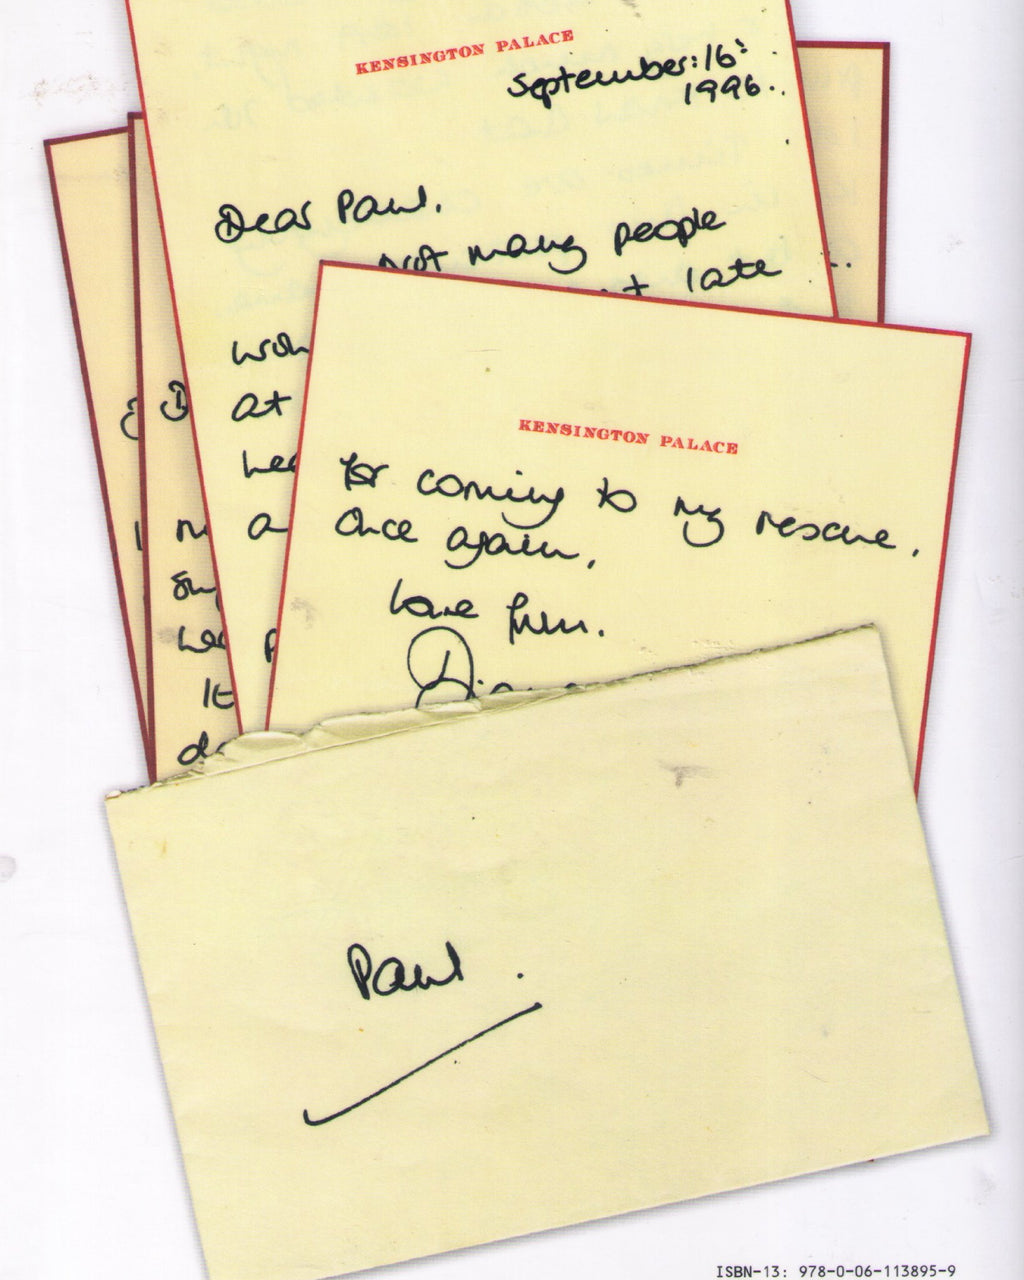 KENSINGTON PALACE
September: 16:
1996.
Dear Paul.
not many people
late
at
a
KENSINGTON PALACE
for coming to my rescue.
Once again,
love from.
Paul.
It
ISBN-13: 978-0-06-113895-9